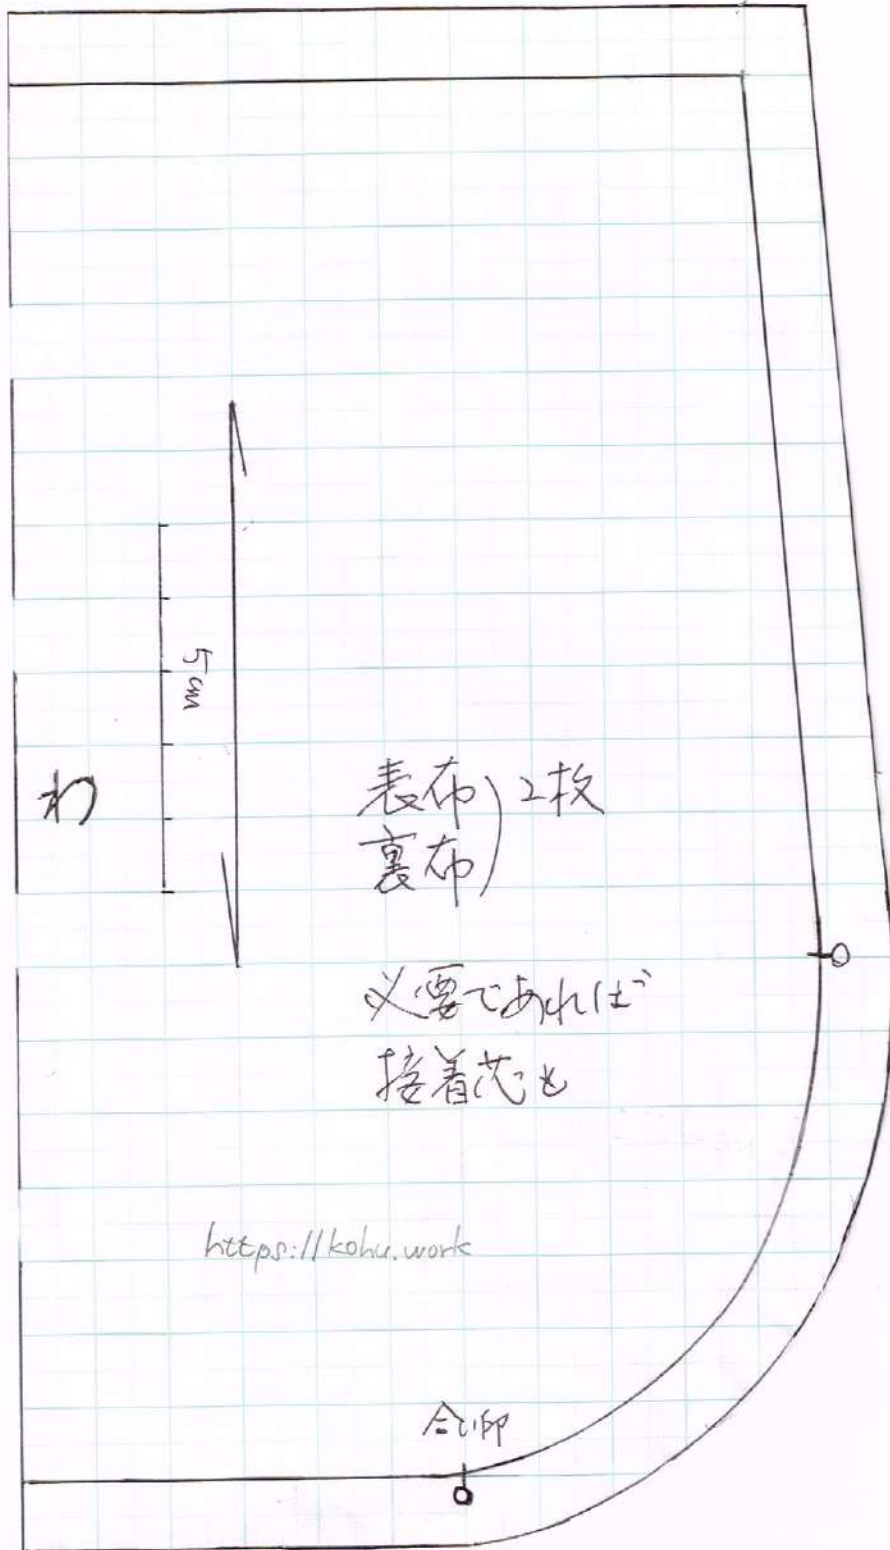 5cm
わ
表布)2枚
裏布)
必要であれば
接着芯も
https://kohu.work
合い印